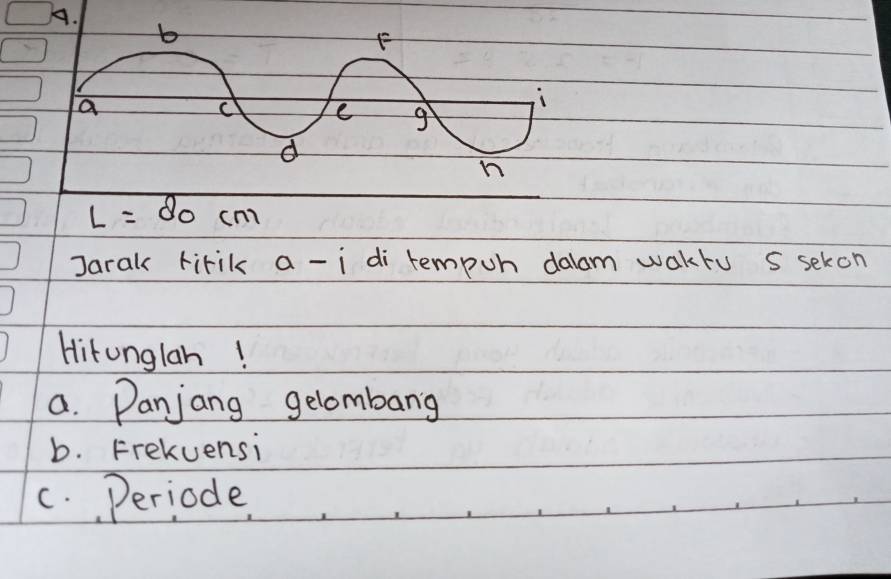 4.
b F
a c e g i
d h
L = 80 cm
Jarak titik a - i di tempuh dalam waktu 5 sekon
Hitunglah !
a. Panjang gelombang
b. Frekuensi
c. Periode